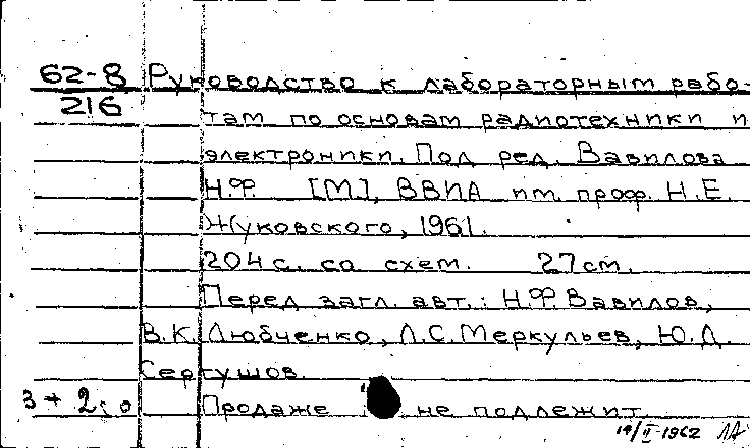 62-8 Руководство к лабораторным рабо-
216 там по основам радиотехники и
электроники. Под ред. Вавилова
Н.Ф. [М.], ВВИА им. проф. Н.Е.
Жуковского, 1961.
204 с. со схем. 27 см.
Перед загл. авт.: Н.Ф. Вавилов,
В.К. Любченко, Л.С. Меркульев, Ю.Д.
Сергушов.
3 + 2; 0 Продаже не подлежит.
14/II-1962